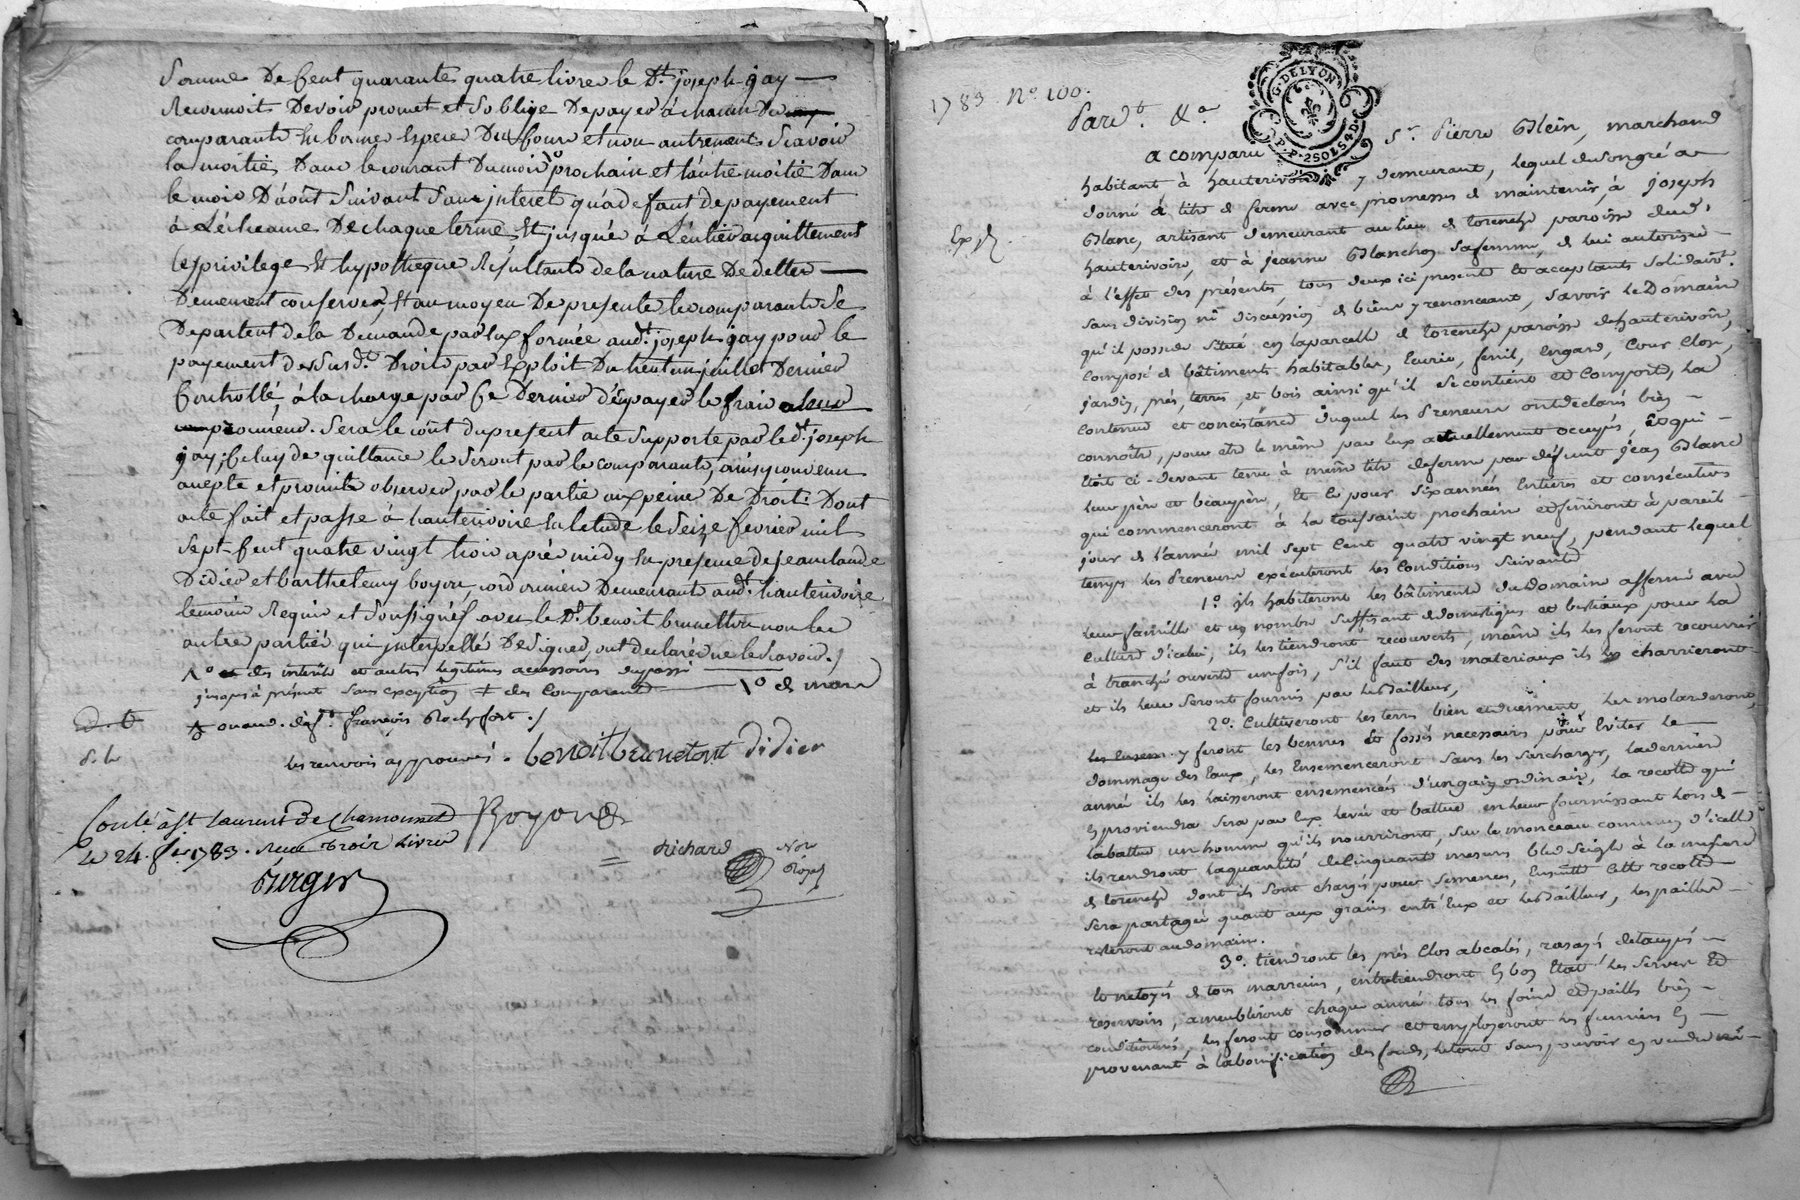 Somme De Cent quarante quatre livres le Dt. joseph gay
Reconnoit Devoir promet et S'oblige De payer à chacun Des
comparants En bonnes Especes Du Cours et non autrement Sçavoir
la moitié Dans le courant Du mois prochain et l'autre moitié Dans
le mois D'août Suivant Sans interet qu'à defaut de payement
à L'écheance De chaque terme Et jusques à L'entier acquittement
Les privilege Et hypotheque Resultants de la nature De dettes
Demeurent conservés, Et au moyen Des presentes les comparants Se
Departent de la Demande par Eux formée aud. joseph gay pour le
payement des susd. Droits par Exploit Du trente un juillet Dernier
Controllé, à la charge par Ce Dernier de payer les frais
Sera le coût du present acte Supporté par led. joseph
gay; Celuy de quittance le Seront par les comparants, ainsy convenu
accepté et promis observer par les parties aux peines De Droit. Dont
acte fait et passé à hauterivoire En l'etude le Seize fevrier mil
Sept Cent quatre vingt trois après midy En presence de jean claude
Didier et barthelemy boyon, cordonnier Demeurants aud. hauterivoire
temoins Requis et Soussignés avec le Dt. benoit brunetton non les
autres parties qui interpellés De signer, ont declarés ne le Sçavoir.
1o des interêts et autres legitimes accessoires du passé
jusques à présent Sans exception + des Comparants 1o de mars
François Rochefort
les renvois approuvés. benoit brunetont didier
Conlé. à St. laurent de Chamousset Boyon
le 24. fer. 1783. Reçu trois livres
richard Nore
Royal
Purger
1783. No. 100.
G. DE LYON
P.P. 2 SOLS 4 D.
Pardt. &a
a comparu Sr. Pierre Blein, marchand
habitant à hauterivoire y demeurant, lequel de Son gré a
donné à titre de ferme avec promesses de maintenir, à joseph
Blanc, artisant demeurant au lieu de torenche paroisse dud.
hauterivoire, et à jeanne Blanchon Sa femme, de lui autorisée
à l'effet des présentes, tous deux ici présents et acceptants Solidairt.
Sans division ni discussion de biens y renonceant, Savoir le Domaine
qu'il possede Situé en la parcelle de torenche paroisse de hauterivoire,
Composé de bâtiments habitables, Ecurie, fenil, Engard, Cour, Clos,
jardin, prés, terres, et bois ainsi qu'il Se contient et Comporte, la
Contenue et consistance duquel les Preneurs ont déclarés bien
connoître, pour etre le même par Eux actuellement occupés, Et qui
Etoit ci-devant tenu à même titre de ferme par deffunt jean Blanc
leur père et beaupère, Et ce pour Six années Entieres et consécutives
qui commenceront à la toussaint prochain et finiront à pareil
jour de l'année mil sept Cent quatre vingt neuf, pendant lequel
temps les Preneurs exécuteront les Conditions Suivantes
1o. ils habiteront les bâtiments du Domaine affermé avec
leur famille et un nombre Suffisant de domestiques et bestiaux pour la
Culture d'icelui, ils les tiendront recouverts, même ils les feront recouvrir
à tranché ouverte une fois, S'il faut des materiaux ils les charrieront
et ils leur Seront fournis par les Bailleurs,
2o. Cultiveront les terres bien et duement, les molarderont
y feront les bennes Et fossés necessaires pour Eviter le
dommage des Eaux, les Ensemenceront Sans les Surcharger, la derniere
année ils les laisseront ensemencées d'un gain ordinaire, la recolte qui
En proviendra Sera par Eux levée et battue en leur fournissant lors de
la battue un homme qu'ils nourriront, Sur le monceau commun d'icelle
ils rendront la quantité de Cinquante mesures bled Seigle à la mesure
de torenche dont ils Sont chargés pour Semences, Ensuitte Cette recolte
Sera partagée quant aux grains entr'Eux et les Bailleurs, les pailles
resteront au domaine.
3o. tiendront les prés Clos rasés detaupés
et netoyés de tous marreins, entretiendront En bon Etat les Serves Et
reservoirs, ameubliront chaque année tous les foins et pailles bien
conditionnés, les feront consommer et employeront les fumiers En
provenant à la bonification des fonds, le tout Sans pouvoir en vendre ni